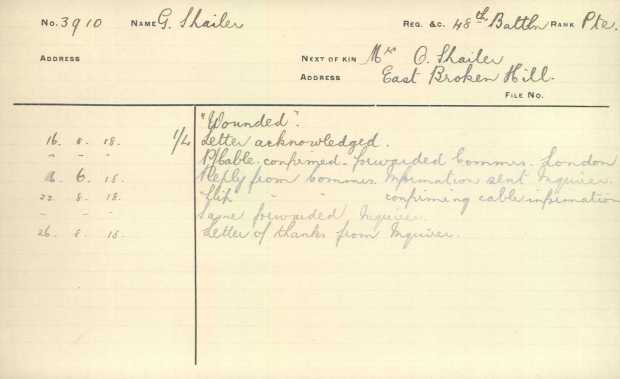 No. 3910 NAME G. Shailer REG. &C. 48th Battln RANK Pte.
ADDRESS NEXT OF KIN Mrs O. Shailer
ADDRESS East Broken Hill.
FILE NO.
"Wounded".
16. 8. 18. 1/L Letter acknowledged.
" " " Cable confirmed - forwarded Commrs. London
6. 18. Reply from Commrs. Information sent Inquirer.
22. 8. 18. " " confirming cable information
- - - Same forwarded Inquirer.
26. 8. 18. Letter of thanks from Inquirer.